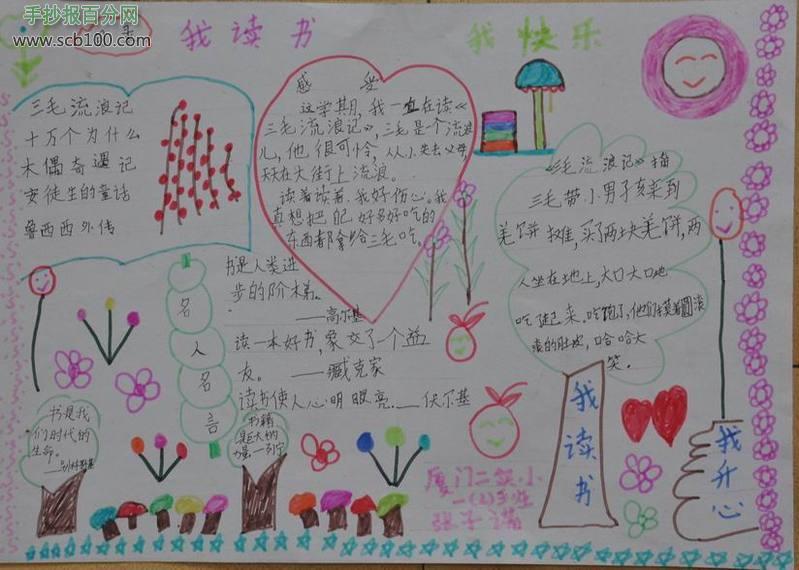 手抄报百分网
www.scb100.com
我读书
我快乐
三毛流浪记
十万个为什么
木偶奇遇记
安徒生的童话
鲁西西外传
感受
这学期,我一直在读《
三毛流浪记》,三毛是个流浪
儿,他很可怜,从小失去父母,
天天在大街上流浪。
读着读着,我好伤心。我
真想把自己好多好吃的
东西都拿给三毛吃。
《三毛流浪记》摘
三毛带小男孩来到
羌饼摊,买了两块羌饼,两
人坐在地上,大口大口地
吃了起来。吃饱了,他们摸着圆滚
滚的肚皮,哈哈大
笑。
名人名言
书是人类进
步的阶梯。
——高尔基
读一本好书,象交了一个益
友。——臧克家
读书使人心明眼亮。——伏尔基
书是我
们时代的
生命。
——别林斯基
书籍
是巨大的
力量—列宁
我读书
我开心
厦门二实小